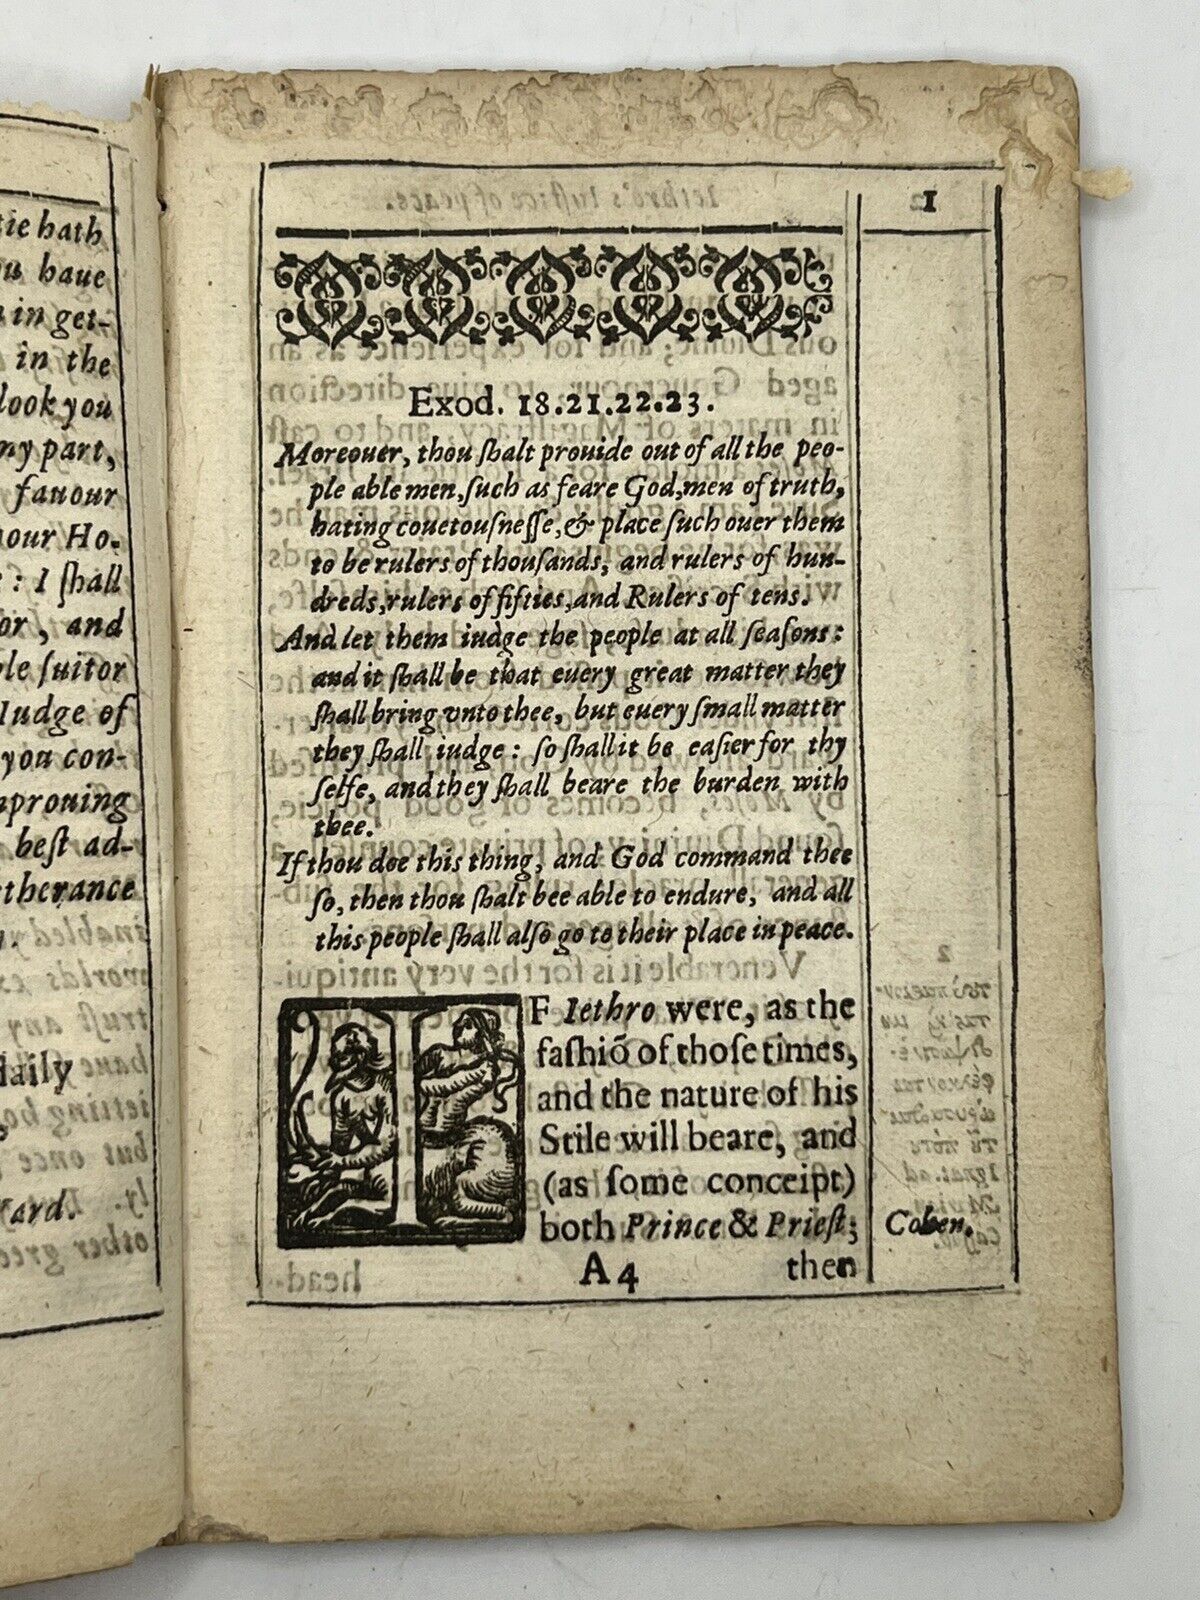 tie hath
u haue
in get-
in the
look you
my part,
fauour
our Ho-
: I ſhall
or, and
ſuitor
Iudge of
you con-
mprouing
beſt ad-
therance
daily
ard.
1
Exod. 18.21.22.23.
Moreouer, thou ſhalt prouide out of all the peo-
ple able men, ſuch as feare God, men of truth,
hating couetouſneſſe, & place ſuch ouer them
to be rulers of thouſands, and rulers of hun-
dreds, rulers of fifties, and Rulers of tens.
And let them iudge the people at all ſeaſons:
and it ſhall be that euery great matter they
ſhall bring vnto thee, but euery ſmall matter
they ſhall iudge: ſo ſhall it be eaſier for thy
ſelfe, and they ſhall beare the burden with
thee.
If thou doe this thing, and God command thee
ſo, then thou ſhalt bee able to endure, and all
this people ſhall alſo go to their place in peace.
IF Iethro were, as the
faſhiō of thoſe times,
and the nature of his
Stile will beare, and
(as ſome conceipt)
both Prince & Prieſt;
Cohen.
A4
then